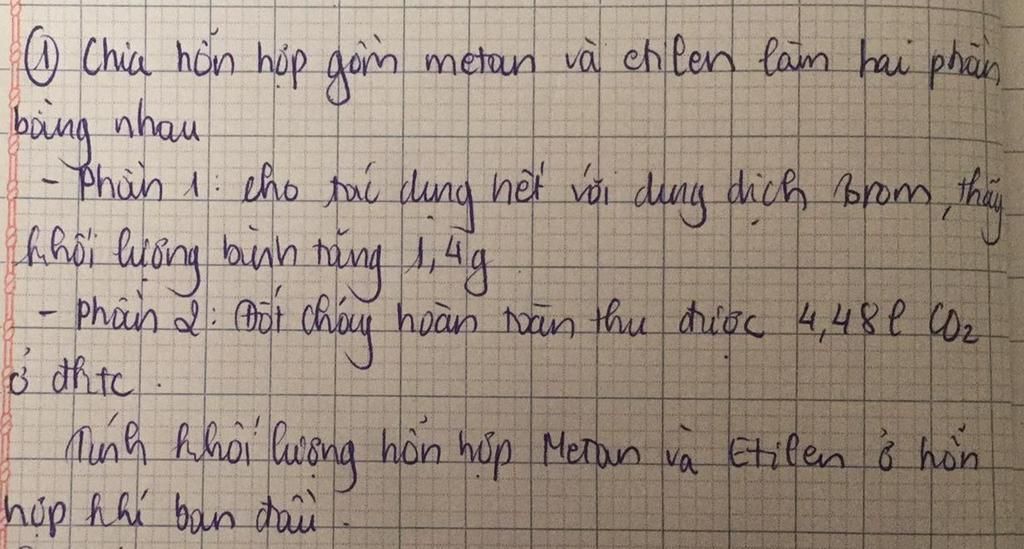 ① Chia hỗn hợp gồm metan và etilen làm hai phần
bằng nhau
- Phần 1: cho tác dụng hết với dung dịch Brom, thấy
khối lượng bình tăng 1,4g
- Phần 2: Đốt cháy hoàn toàn thu được 4,48l CO₂
ở đktc.
Tính khối lượng hỗn hợp Metan và Etilen ở hỗn
hợp khí ban đầu.